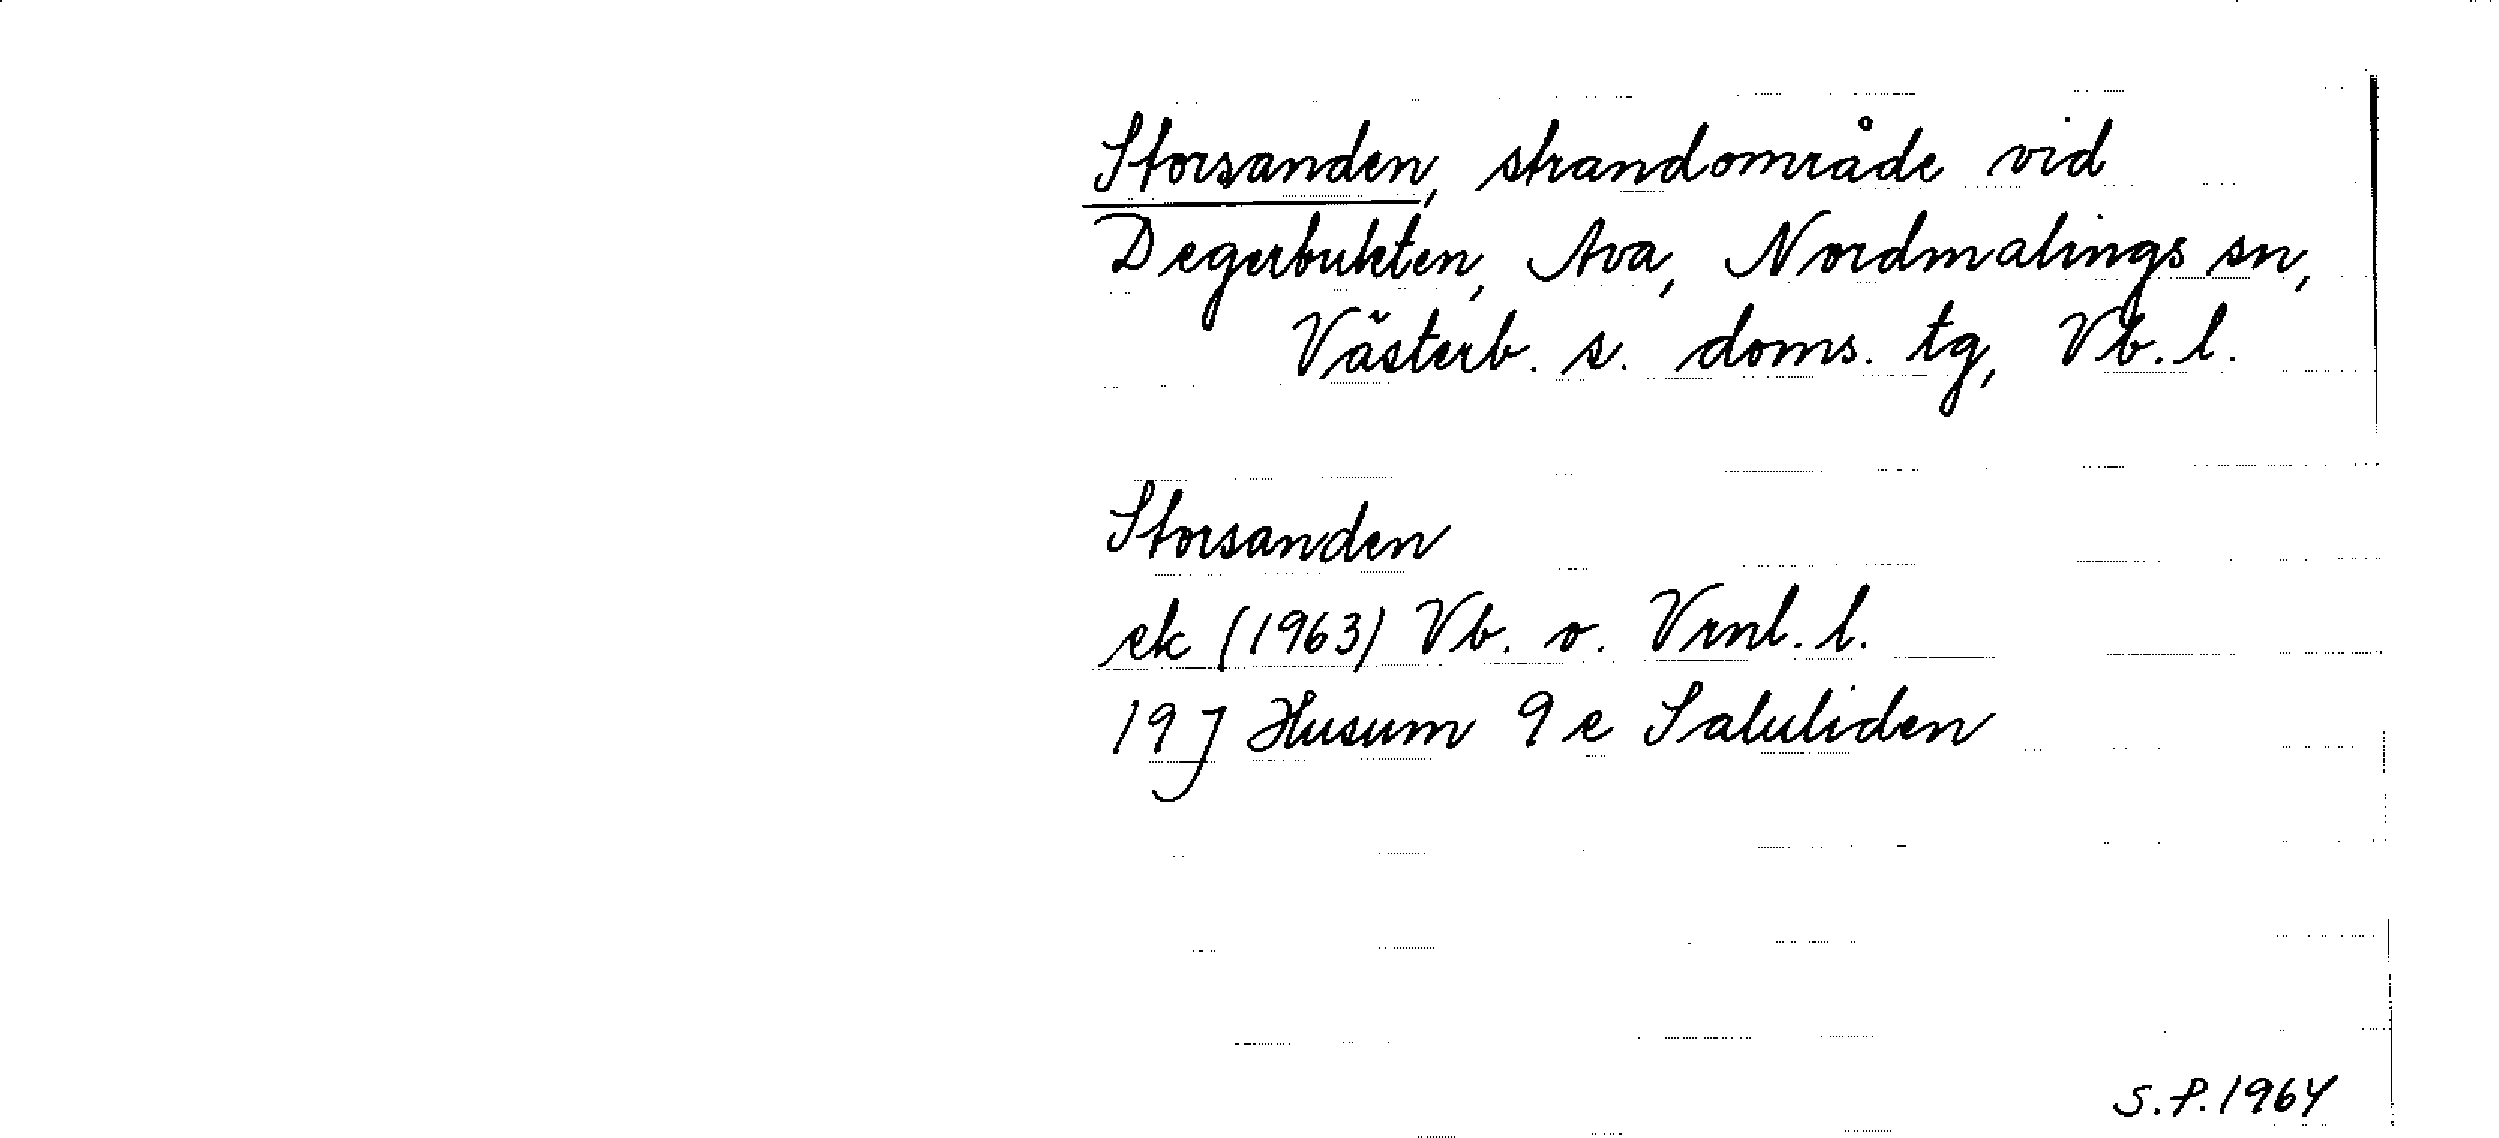 Storsanden, strandområde vid
Degerbukten, Ava, Nordmalings sn,
Västerb. s. doms. tg, Vb. l.
Storsanden
ek (1963) Vb. o. Vrnl. l.
19 J Husum 9 e Saluliden
S.P. 1964